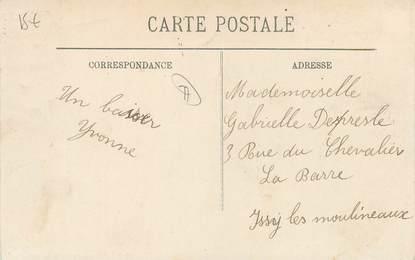 15€
CARTE POSTALE
CORRESPONDANCE
Un baiser
Yvonne
ADRESSE
Mademoiselle
Gabrielle
3 Rue du Chevalier
La Barre
Issy les moulineaux